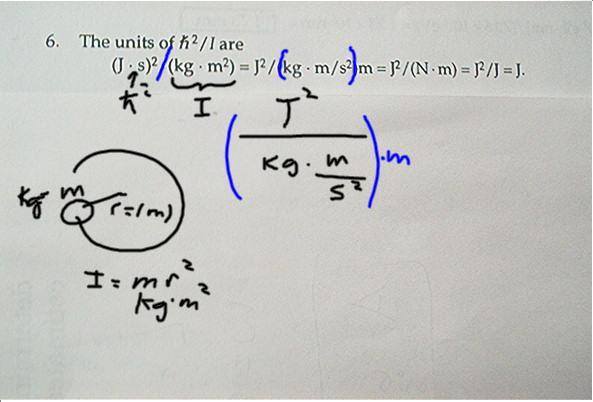 6. The units of ℏ²/I are
(J · s)²/(kg · m²) = J²/(kg · m/s²)m = J²/(N·m) = J²/J = J.
ħ² I
(J² / (kg · m/s²)) · m
kg m r=(m)
I = mr²
kg·m²